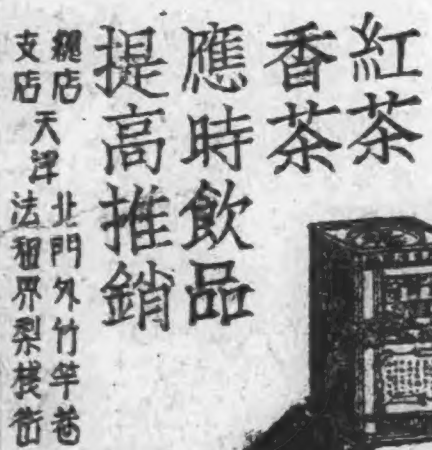 紅茶
香茶
應時飲品
提高推銷
總店 北門外竹竿巷
天津
支店 法租界梨棧街